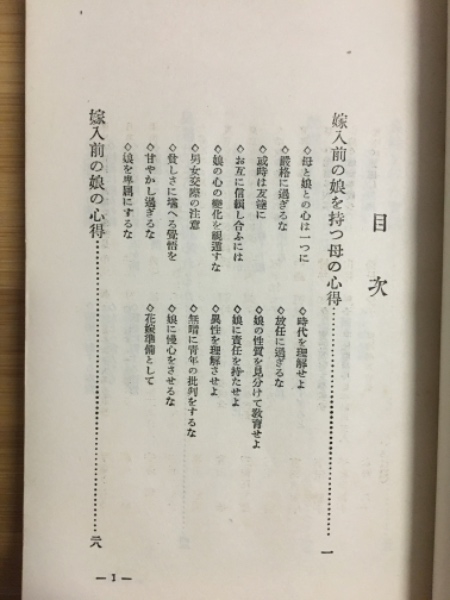 目次
嫁入前の娘を持つ母の心得……………………一
◇母と娘との心は一つに
◇時代を理解せよ
◇嚴格に過ぎるな
◇放任に過ぎるな
◇或時は友達に
◇娘の性質を見分けて敎育せよ
◇お互に信賴し合ふには
◇娘に責任を持たせよ
◇娘の心の變化を見逃すな
◇異性を理解させよ
◇男女交際の注意
◇無暗に靑年の批判をするな
◇貧しさに堪へる覺悟を
◇娘に慢心をさせるな
◇甘やかし過ぎるな
◇花嫁準備として
◇娘を卑屈にするな
嫁入前の娘の心得……………………
— 1 —